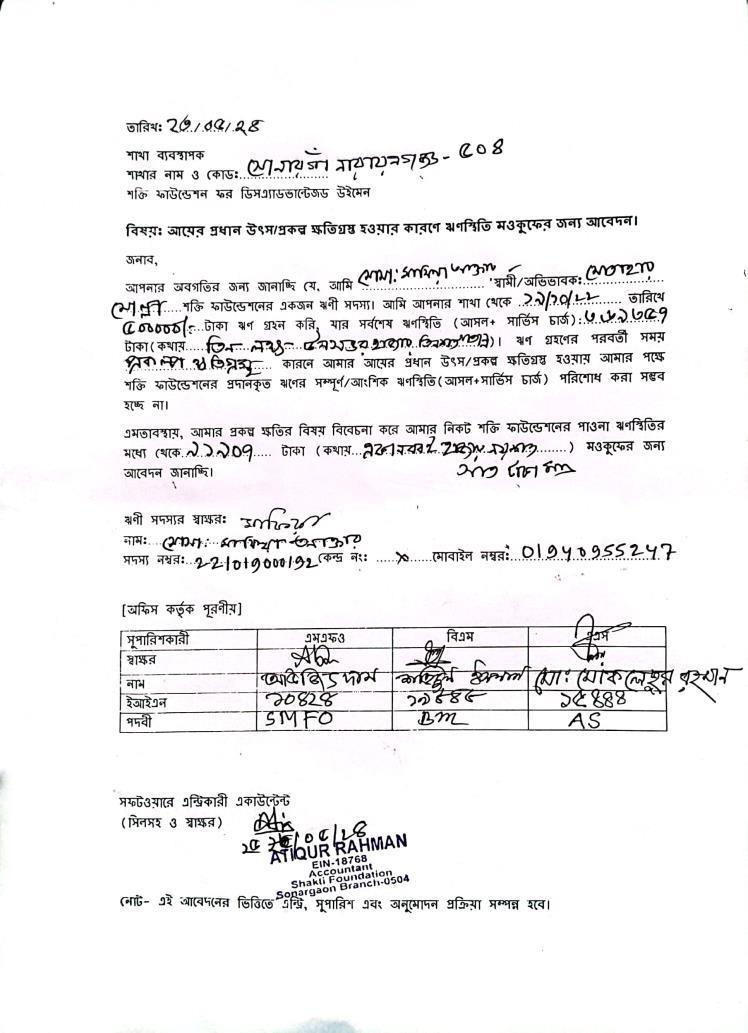 তারিখ: ২৩/০৫/২৪
শাখা ব্যবস্থাপক
শাখার নাম ও কোড: সোনারগাঁ নারায়নগঞ্জ - ৫০৪
শক্তি ফাউন্ডেশন ফর ডিসএ্যাডভান্টেজড উইমেন
বিষয়: আয়ের প্রধান উৎস/প্রকল্প ক্ষতিগ্রস্থ হওয়ার কারণে ঋণস্থিতি মওকুফের জন্য আবেদন।
জনাব,
আপনার অবগতির জন্য জানাচ্ছি যে, আমি মোসা: স্বামী/অভিভাবক:
শক্তি ফাউন্ডেশনের একজন ঋণী সদস্য। আমি আপনার শাখা থেকে ২৯/১০/২২ তারিখে
৫০০০০০/- টাকা ঋণ গ্রহন করি, যার সর্বশেষ ঋণস্থিতি (আসল+ সার্ভিস চার্জ):
টাকা(কথায় তিন লক্ষ )। ঋণ গ্রহণের পরবর্তী সময়
প্রকল্প ক্ষতিগ্রস্থ কারনে আমার আয়ের প্রধান উৎস/প্রকল্প ক্ষতিগ্রস্থ হওয়ায় আমার পক্ষে
শক্তি ফাউন্ডেশনের প্রদানকৃত ঋণের সম্পূর্ণ/আংশিক ঋণস্থিতি(আসল+সার্ভিস চার্জ) পরিশোধ করা সম্ভব
হচ্ছে না।
এমতাবস্থায়, আমার প্রকল্প ক্ষতির বিষয় বিবেচনা করে আমার নিকট শক্তি ফাউন্ডেশনের পাওনা ঋণস্থিতির
মধ্যে থেকে ৯১৯০৭ টাকা (কথায় একানব্বই হাজার নয়শত ) মওকুফের জন্য
আবেদন জানাচ্ছি। সাত টাকা মাত্র
ঋণী সদস্যর স্বাক্ষর:
নাম: মোসা: আক্তার
সদস্য নম্বর: 221019000192 কেন্দ্র নং: মোবাইল নম্বর: 01940955247
[অফিস কর্তৃক পূরণীয়]
সুপারিশকারী এমএফও বিএম এএস
স্বাক্ষর
নাম ইসলাম মো: রহমান
ইআইএন ১০৪২৪ ১৫৪৪৪
পদবী SMFO BM AS
সফটওয়ারে এন্ট্রিকারী একাউন্টেন্ট
(সিলসহ ও স্বাক্ষর)
ATIQUR RAHMAN
EIN-18768
Accountant
Shakti Foundation
Sonargaon Branch-0504
নোট- এই আবেদনের ভিত্তিতে এন্ট্রি, সুপারিশ এবং অনুমোদন প্রক্রিয়া সম্পন্ন হবে।